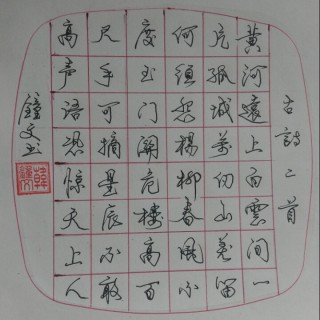 古詩二首
黄河遠上白雲间一
片孤城萬仞山羌笛
何须怨楊柳春風不
度玉门關危樓高百
尺手可摘星辰不敢
高声语恐惊天上人
鐘文书